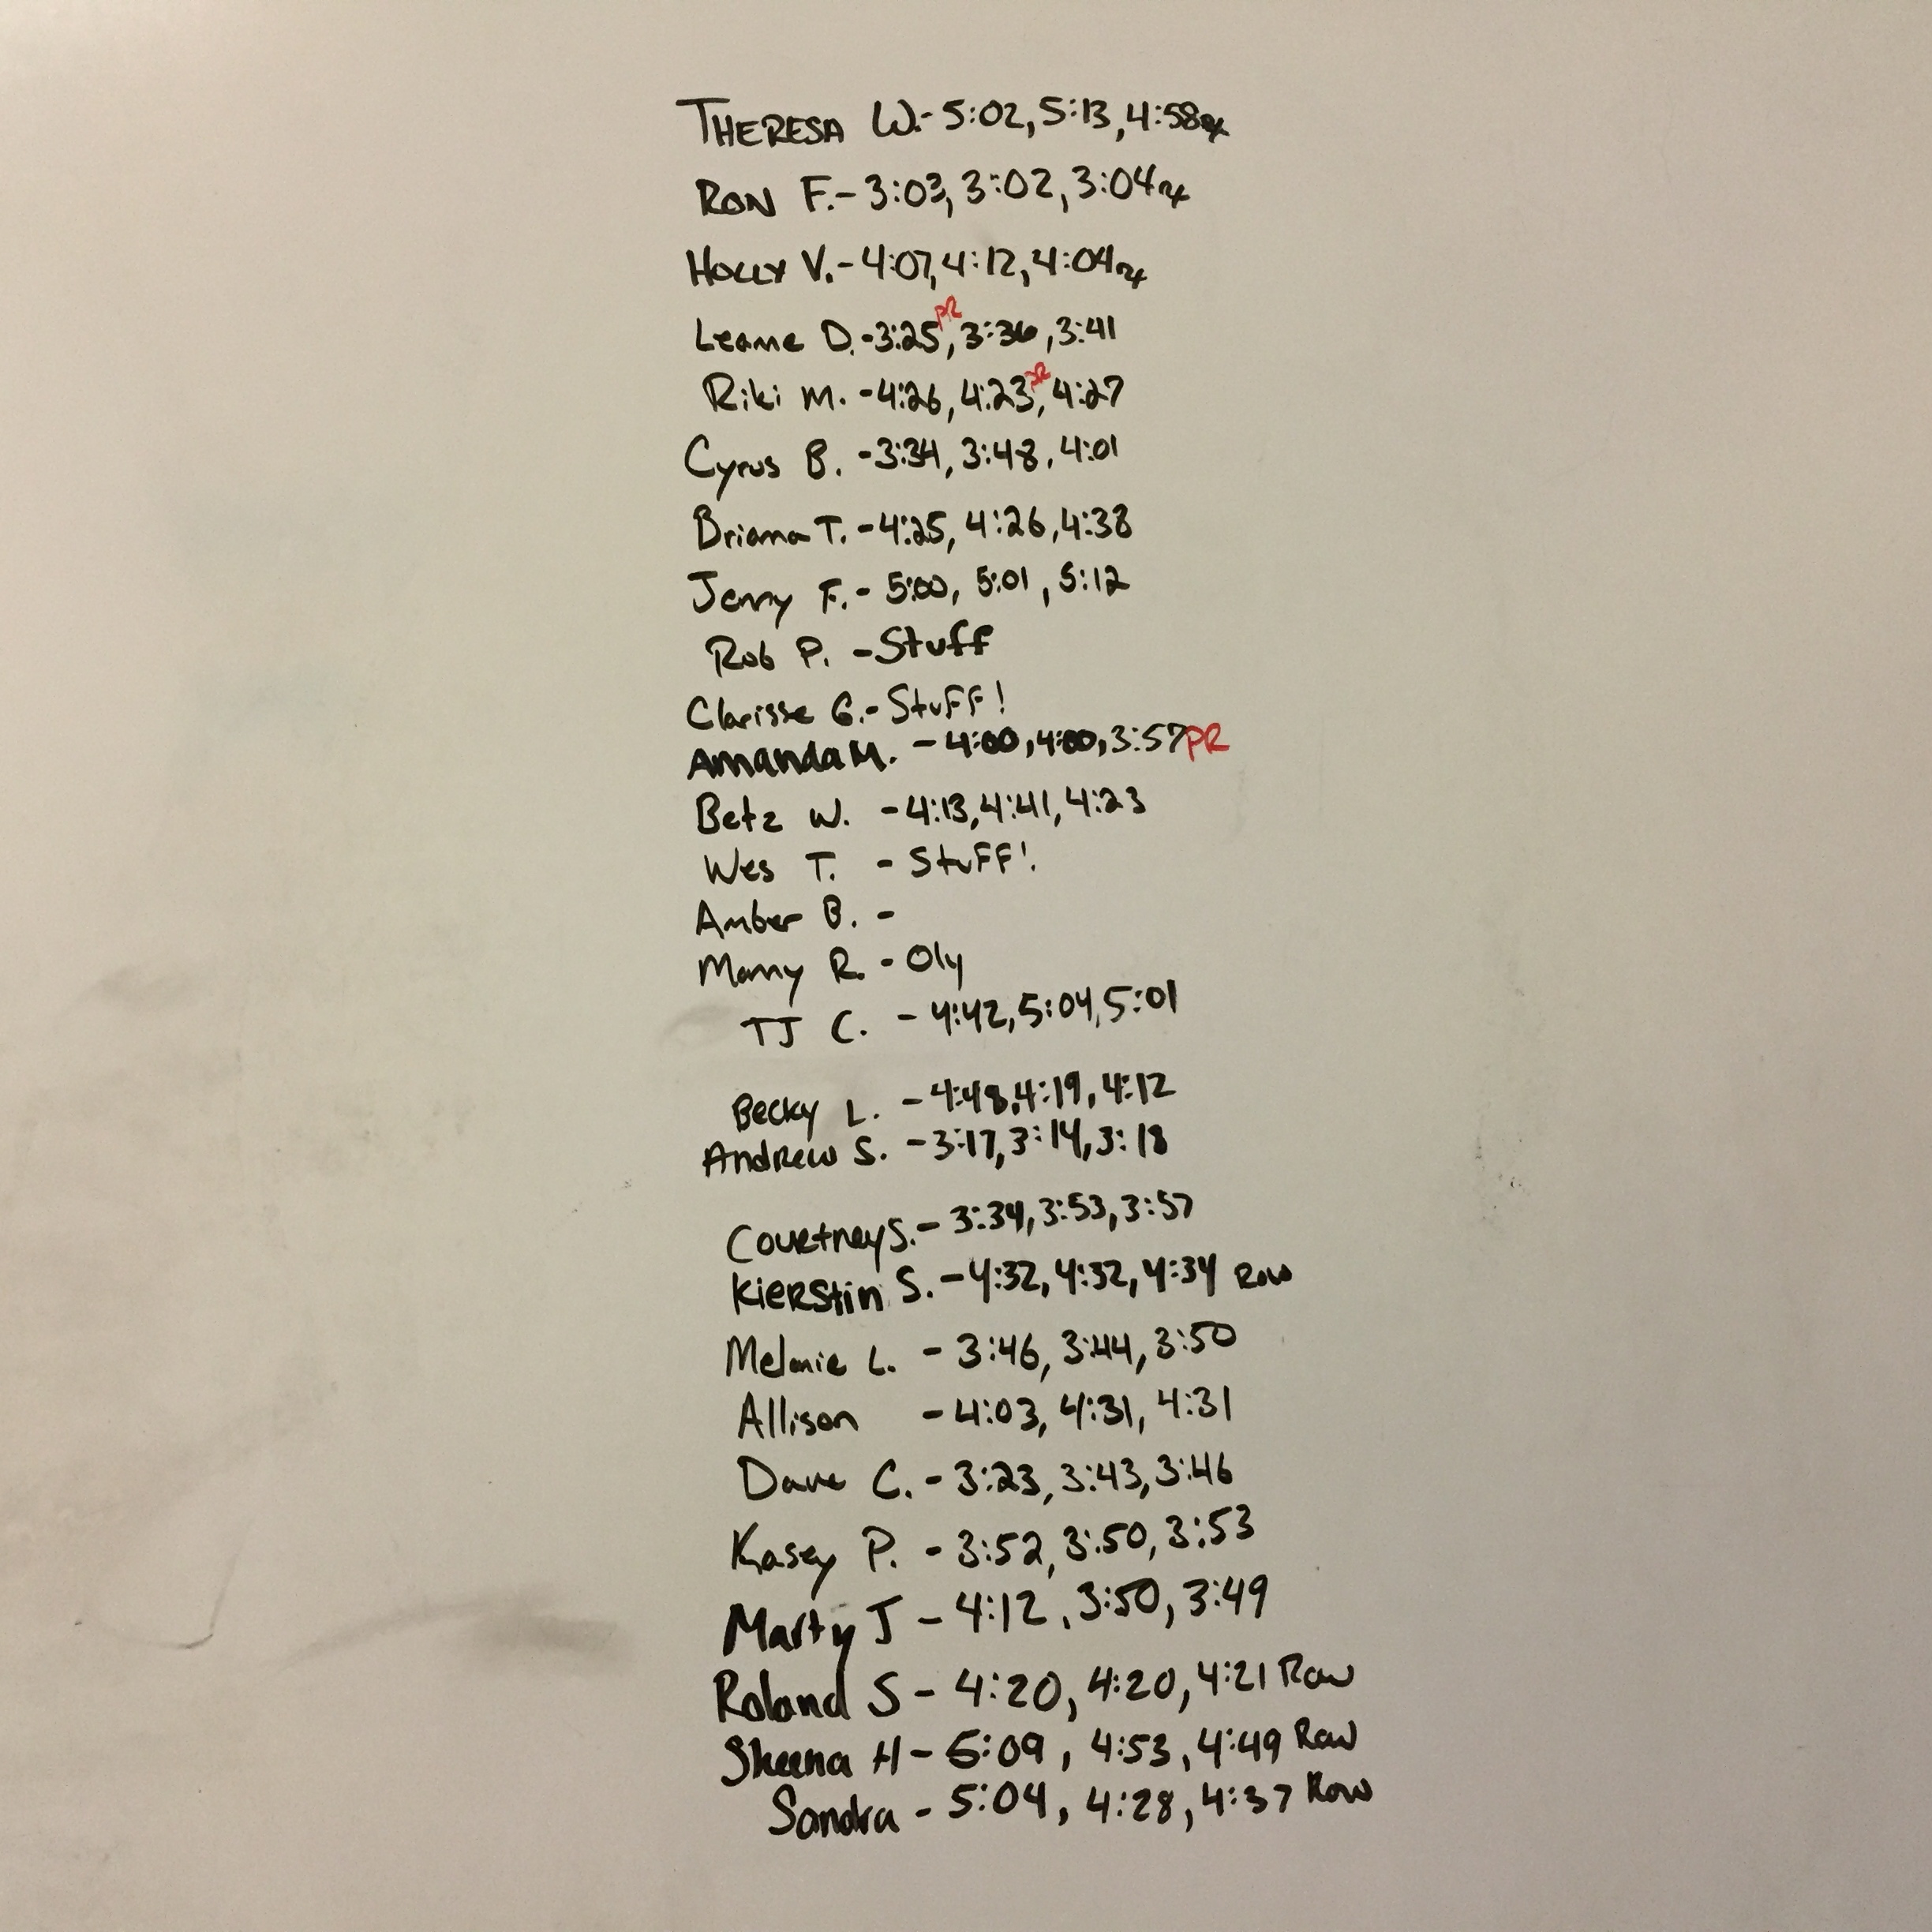 THERESA W.- 5:02, 5:13, 4:58 rx
RON F.- 3:03, 3:02, 3:04 rx
HOLLY V.- 4:07, 4:12, 4:04 rx
Leanne D.- 3:25 PR, 3:36, 3:41
Riki M. - 4:26, 4:23 PR, 4:27
Cyrus B. - 3:34, 3:48, 4:01
Briana T. - 4:25, 4:26, 4:38
Jenny F. - 5:00, 5:01, 5:12
Rob P. - Stuff
Clarisse G.- StuFF!
Amanda M. - 4:00, 4:00, 3:57 PR
Betz W. - 4:13, 4:41, 4:23
Wes T. - StuFF!
Amber B. -
Manny R. - Oly
TJ C. - 4:42, 5:04, 5:01
Becky L. - 4:48, 4:19, 4:12
Andrew S. - 3:17, 3:14, 3:18
Courtney S. - 3:34, 3:53, 3:57
Kierstin S. - 4:32, 4:32, 4:34 Row
Melanie L. - 3:46, 3:44, 3:50
Allison - 4:03, 4:31, 4:31
Dave C. - 3:23, 3:43, 3:46
Kasey P. - 3:52, 3:50, 3:53
Marty J - 4:12, 3:50, 3:49
Roland S - 4:20, 4:20, 4:21 Row
Sheena H - 5:09, 4:53, 4:49 Row
Sandra - 5:04, 4:28, 4:37 Row